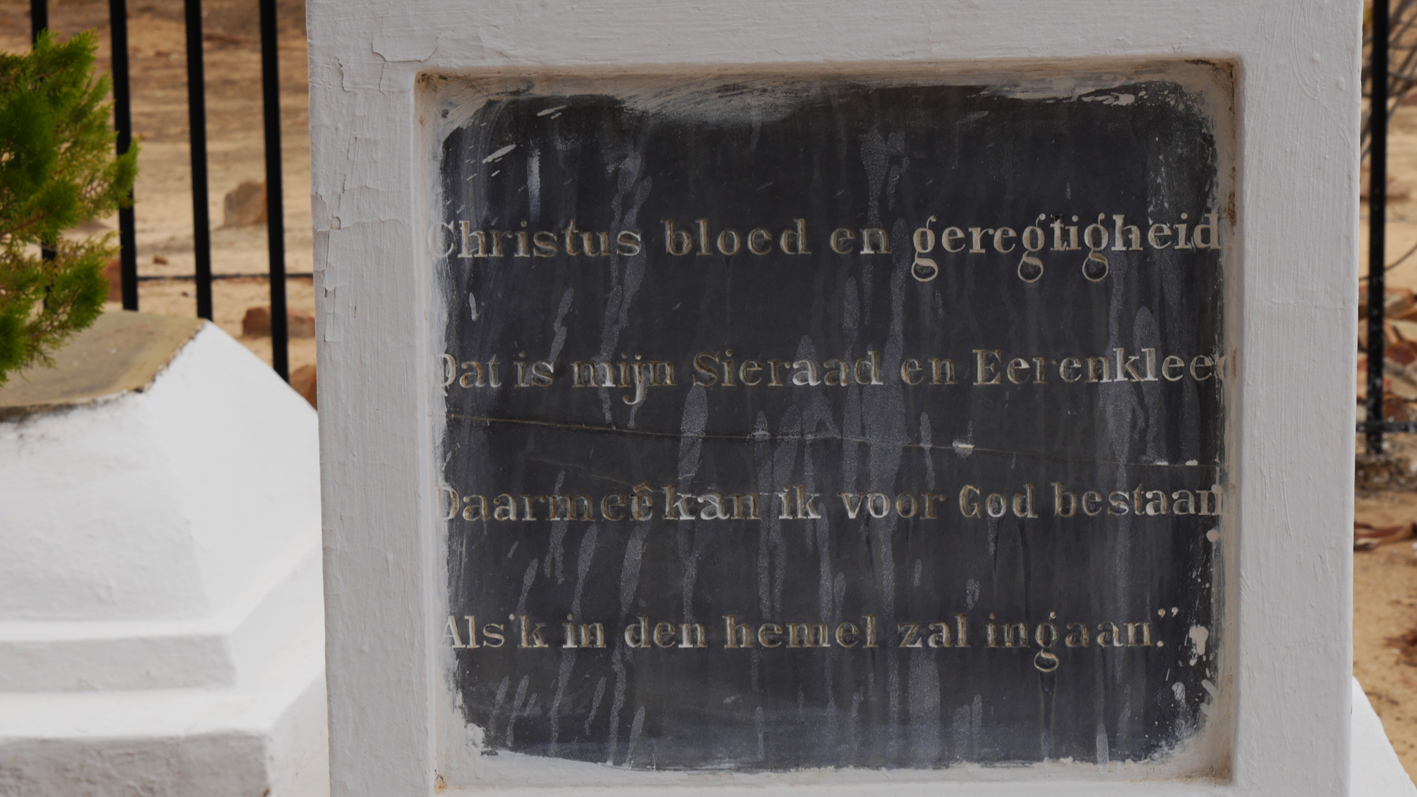 Christus bloed en geregtigheid
Dat is mijn Sieraad en Eerenkleed
Daarmeê kan ik voor God bestaan
Als'k in den hemel zal ingaan.”